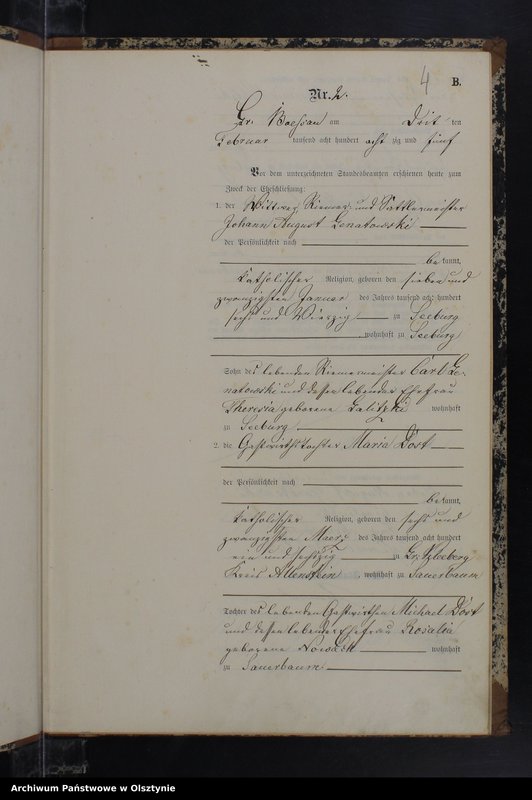 4
B.
Nr. 2.
Gr. Boessau am Drit ten
Februar tausend acht hundert acht zig und fünf
Vor dem unterzeichneten Standesbeamten erschienen heute zum
Zweck der Eheschließung:
1. der Wittwer, Riemer und Sattlermeister
Johann August Genatowski
der Persönlichkeit nach
be kannt,
katholischer Religion, geboren den sieben und
zwanzigsten Januar des Jahres tausend acht hundert
sechs und Vierzig zu Seeburg
, wohnhaft zu Seeburg
Sohn des lebenden Riemermeister Carl Ge-
natowski und dessen lebender Ehefrau
Theresia geborene Galitzki wohnhaft
zu Seeburg
2. die Gastwirthstochter Maria Dost
der Persönlichkeit nach
be kannt,
katholischer Religion, geboren den sechs und
zwanzigsten Maerz des Jahres tausend acht hundert
ein und sechszig zu Gr.
Kreis Allenstein, wohnhaft zu Sauerbaum
Tochter des lebenden Gastwirthen Michael Dost
und dessen lebender Ehefrau Rosalia
geborene Nowack wohnhaft
zu Sauerbaum
Archiwum Państwowe w Olsztynie